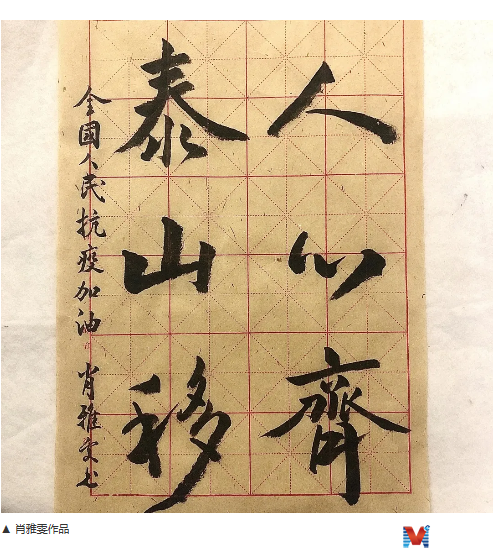 人心齊
泰山移
全國人民抗疫加油 肖雅雯书
▲ 肖雅雯作品